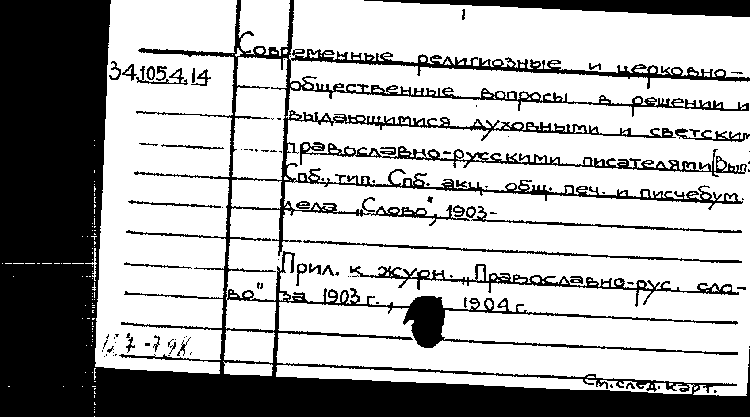 1
Современные религиозные и церковно-
34.105.4.14
общественные вопросы в решении и
выдающимися духовными и светским
православно-русскими писателями [Вып.
Спб., тип. Спб. акц. общ. печ. и писчебум.
дела „Слово", 1903-
Прил. к журн. „Православно-рус. сло-
во" за 1903 г., 1904 г.
См. след. карт.